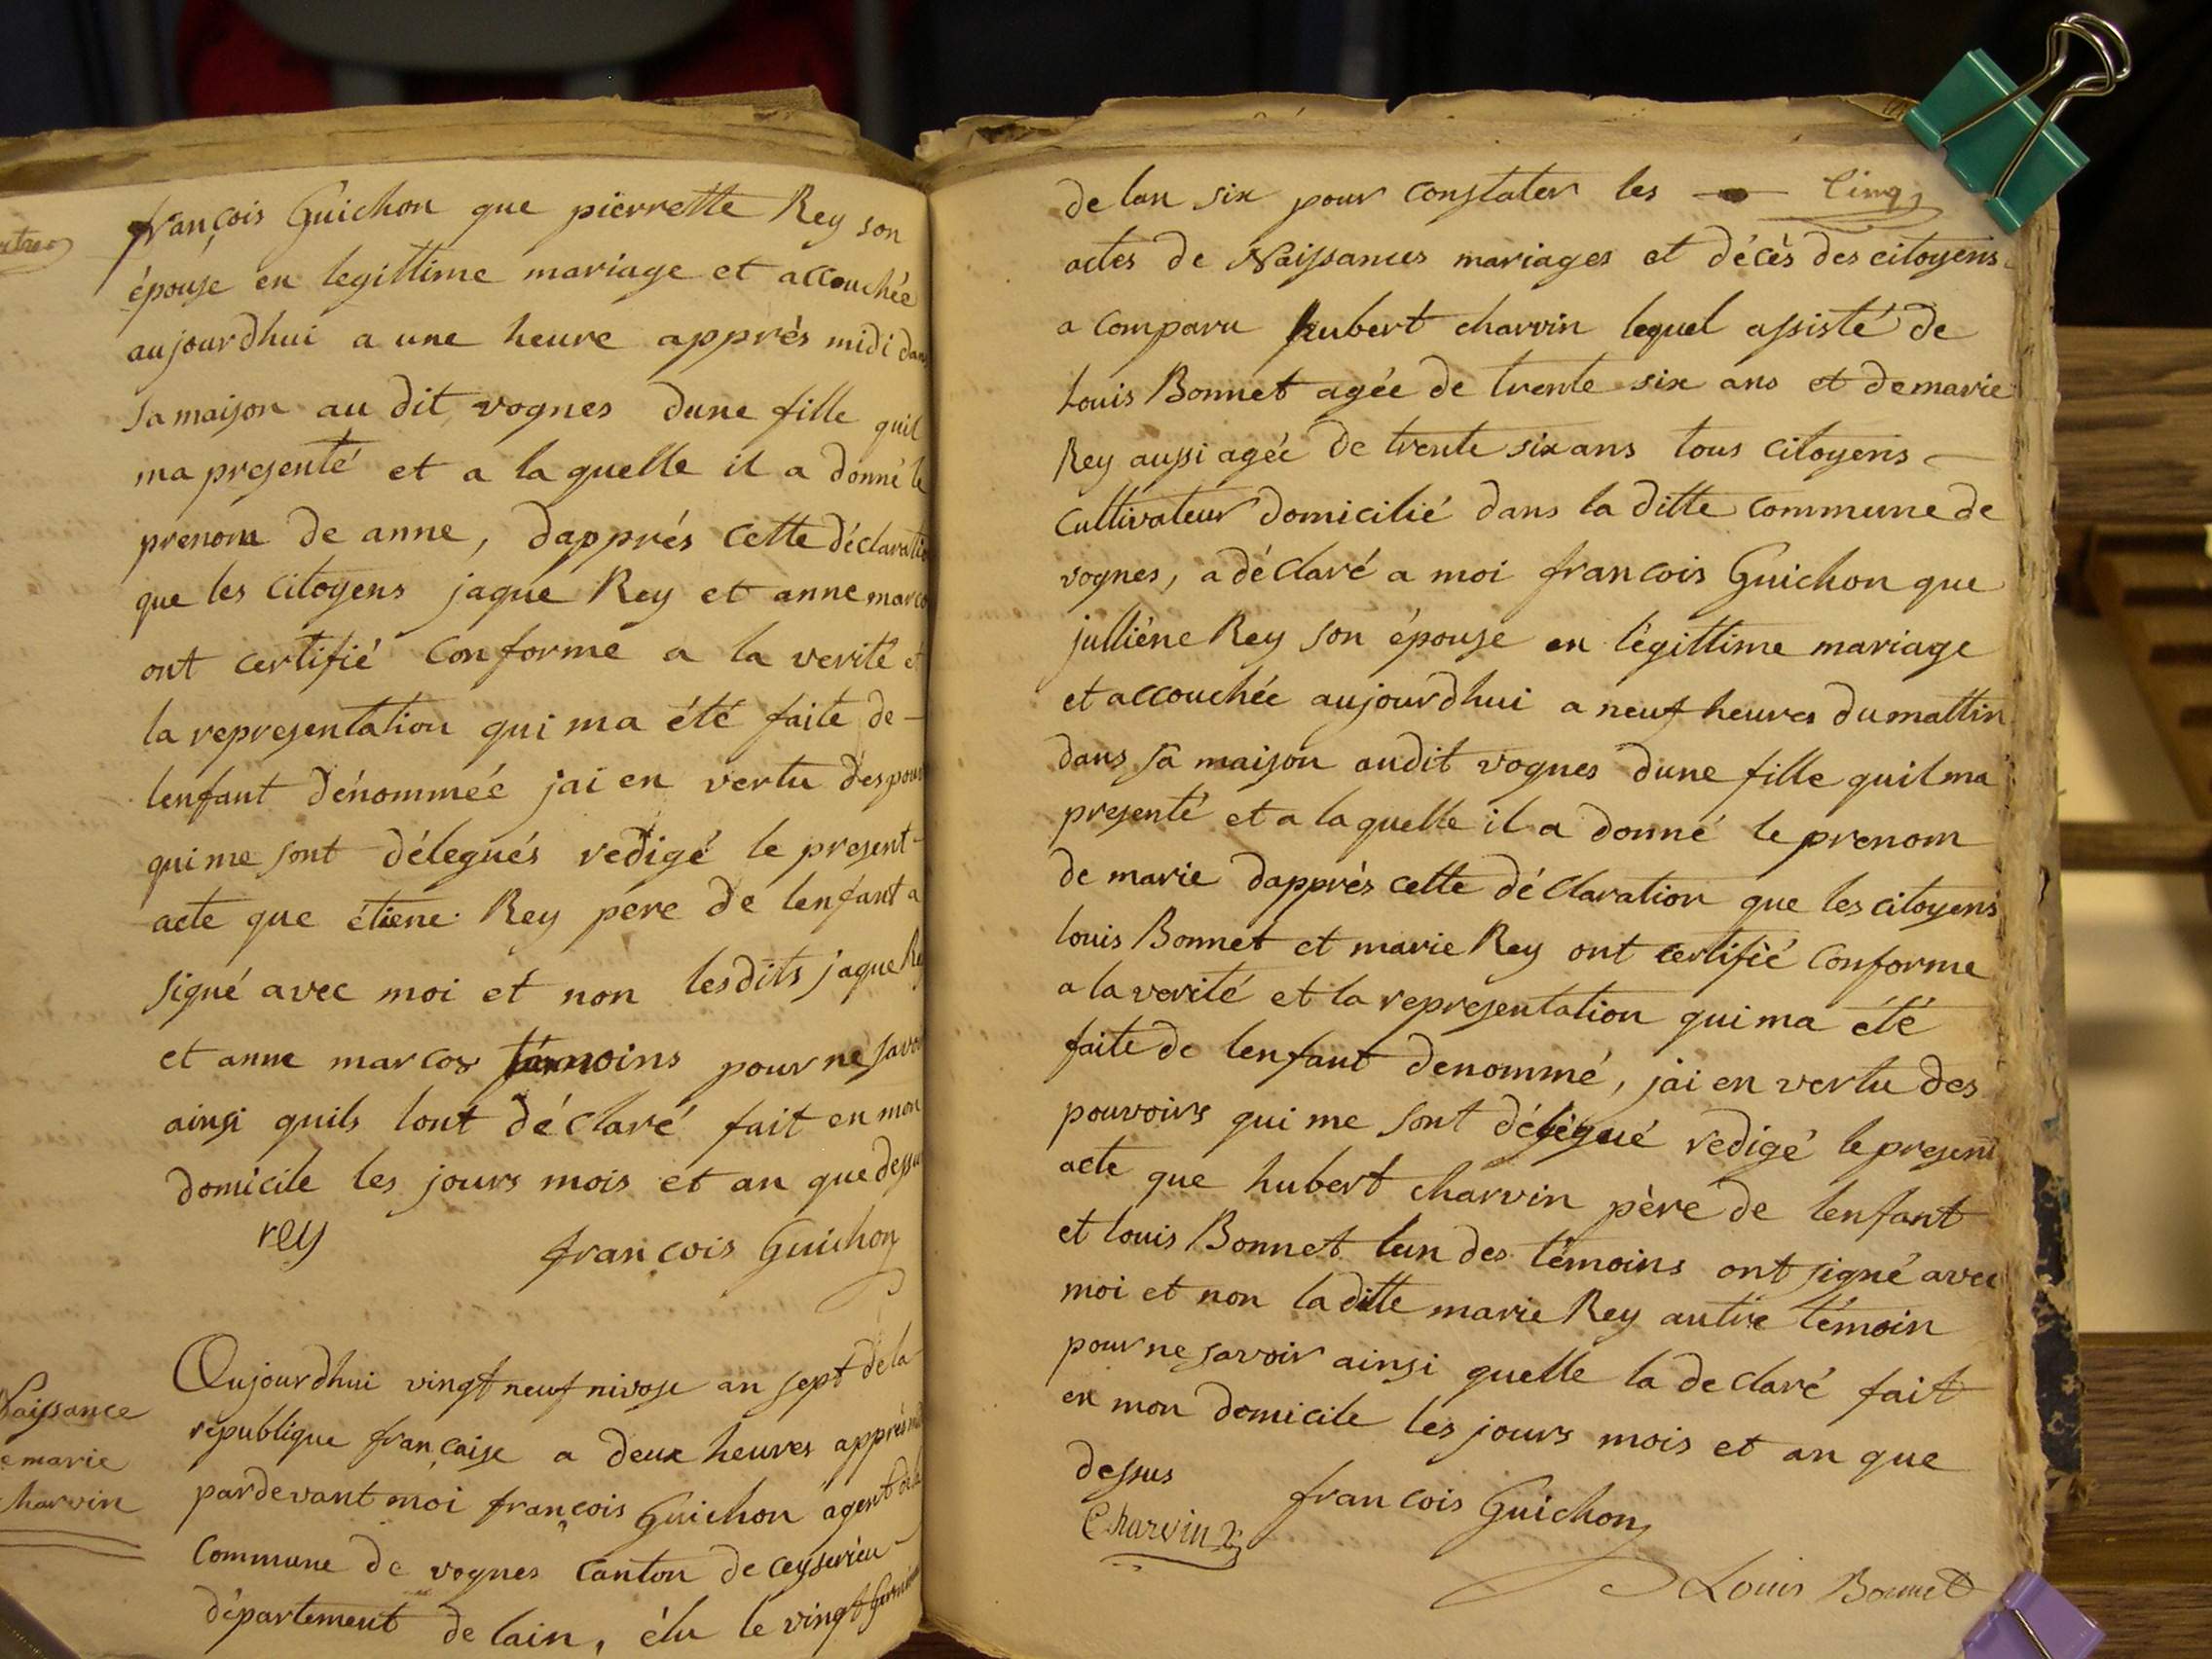 françois Guichon que pierrette Rey son
épouse en legittime mariage et accouchée
aujourdhui a une heure apprés midi dans
sa maison au dit vognes dune fille quil
ma presenté et a la quelle il a donné le
prenom de anne, dapprés cette déclaratio
que les citoyens jaque Rey et anne marco
ont certifié conforme a la verité et
la representation qui ma été faite de -
lenfant dénommée jai en vertu des pouv
qui me sont délegués redigé le present
acte que étiene Rey pere de lenfant a
signé avec moi et non lesdits jaque Re
et anne marcoz témoins pour ne savo
ainsi quils lont déclaré fait en mon
domicile les jours mois et an que dessu
rey françois Guichon
Naissance
e marie
charvin
Aujourdhui vingt neuf nivose an sept de la
république française a deux heures apprés mi
pardevant moi françois Guichon agent de la
commune de vognes canton de ceyserieu
département de lain, élu le vingt germinal
Cinq
de lan six pour constater les
actes de Naissances mariages et décès des citoyens
a comparu hubert charvin lequel assisté de
Louis Bonnet agée de trente six ans et de marie
Rey aussi agée de trente six ans tous citoyens
cultivateur domicilié dans la ditte commune de
vognes, a déclaré a moi francois Guichon que
julliéne Rey son épouse en légittime mariage
et accouchée aujourdhui a neuf heures du mattin
dans sa maison audit vognes dune fille quil ma
presenté et a la quelle il a donné le prenom
de marie dapprés cette déclaration que les citoyens
louis Bonnet et marie Rey ont certifié conforme
a la verité et la representation qui ma été
faite de lenfant denommé, jai en vertu des
pouvoirs qui me sont délégué redigé le present
acte que hubert charvin père de lenfant
et louis Bonnet lun des témoins ont signé avec
moi et non la ditte marie Rey autre témoin
pour ne savoir ainsi quelle la declaré fait
en mon domicile les jours mois et an que
dessus francois Guichon
Charvin
Louis Bonnet